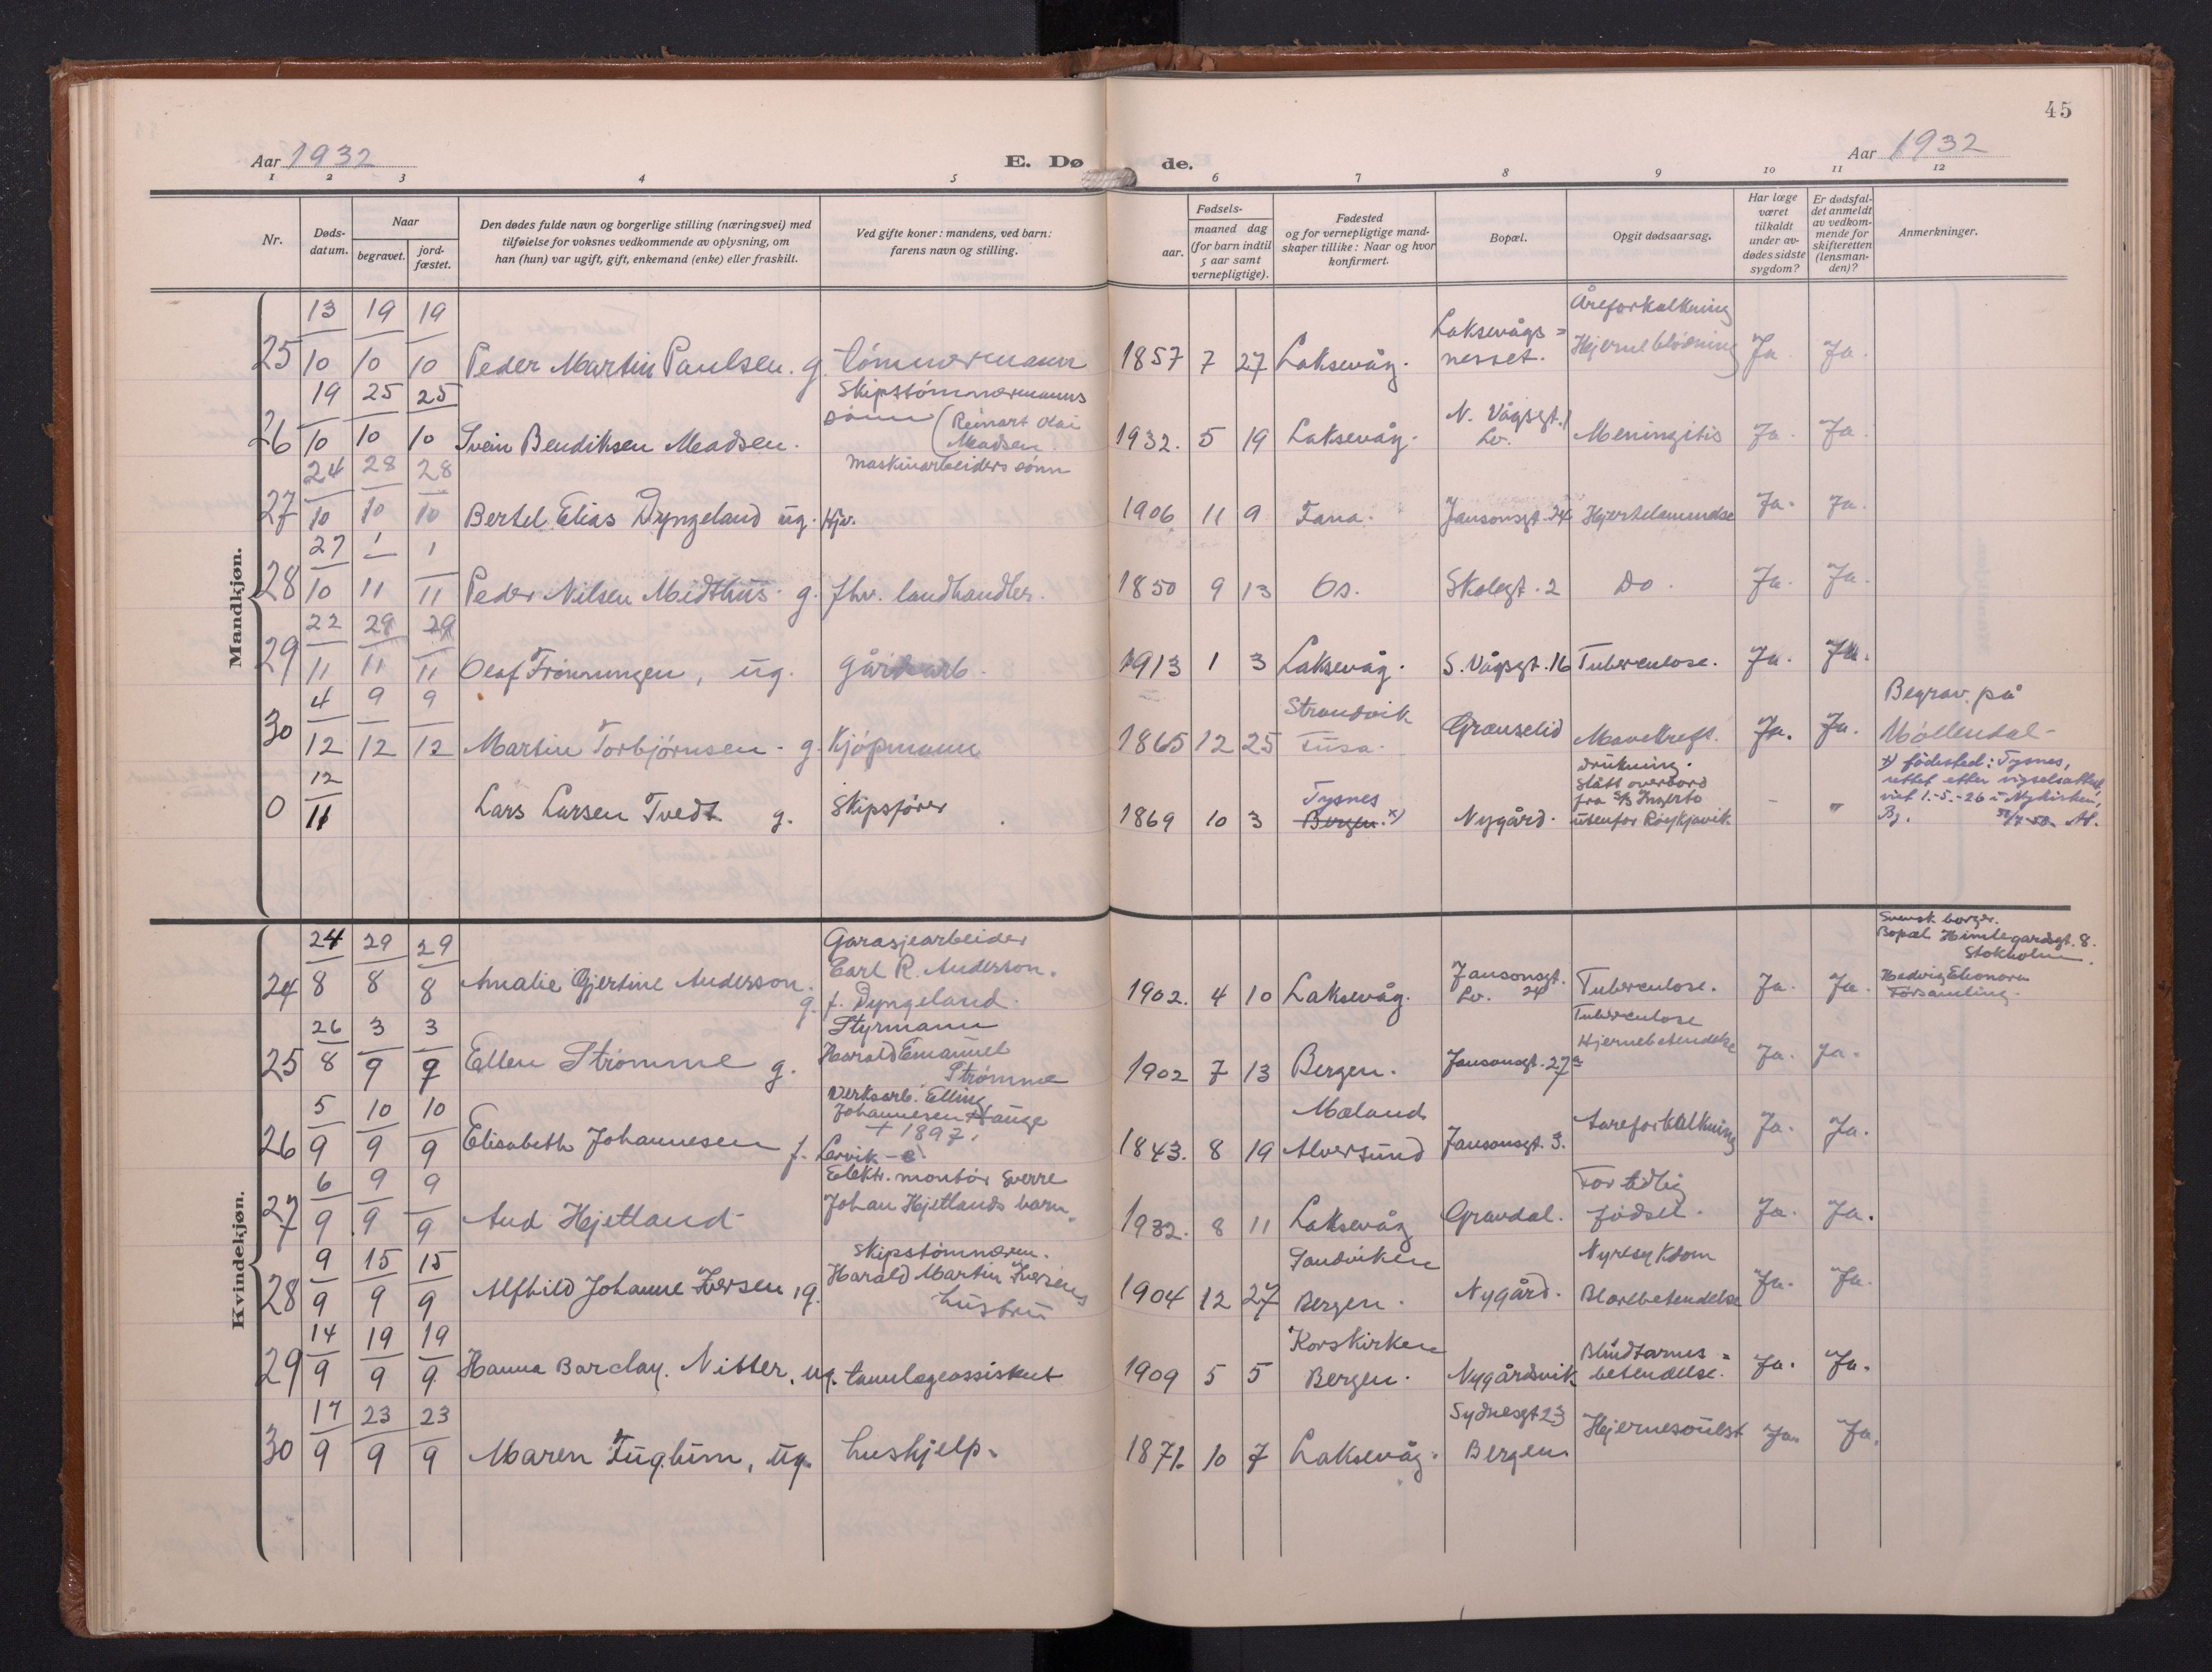 45
Aar 1932
E. Dø de.
Aar 1932
1 2 3 4 5 6 7 8 9 10 11 12
Nr.
Døds-
datum.
Naar
begravet.
jord-
fæstet.
Den dødes fulde navn og borgerlige stilling (næringsvei) med
tilføielse for voksnes vedkommende av oplysning, om
han (hun) var ugift, gift, enkemand (enke) eller fraskilt.
Ved gifte koner: mandens, ved barn:
farens navn og stilling.
Fødsels-
aar.
maaned dag
(for barn indtil
5 aar samt
vernepligtige).
Fødested
og for vernepligtige mand-
skaper tillike: Naar og hvor
konfirmert.
Bopæl.
Opgit dødsaarsag.
Har læge
været
tilkaldt
under av-
dødes sidste
sygdom?
Er dødsfal-
det anmeldt
av vedkom-
mende for
skifteretten
(lensman-
den)?
Anmerkninger.
Mandkjøn.
13 19 19 Åreforkalkning
Laksevågs=
25 10 10 10 Peder Martin Paulsen. g. tömmermann 1857 7 27 Laksevåg. nesset. Hjerneblödning Ja Ja.
19 25 25 Skipstömmermanns
sönn (Reinart Kai N. Vågsgt. 1
26 10 10 10 Svein Bendiksen Madsen. Madsen. 1932. 5 19 Laksevåg. Lv. Meningitis Ja. Ja.
24 28 28 maskinarbeiders sönn
27 10 10 10 Bertel Elias Dyngeland ug. Hjv. 1906 11 9 Fana. Jansonsgt. 24 Hjertelammelse Ja. Ja.
27 1 1
28 10 11 11 Peder Nilsen Midthus. g. fhv. landhandler. 1850 9 13 Os. Skolegt. 2 Do. Ja. Ja.
22 29 29
29 11 11 11 Olaf Frönningen, ug. gårdarb. 1913 1 3 Laksevåg. S. Vågsgt. 16 Tuberculose. Ja. Ja.
4 9 9 Strandvik Begrav. på
30 12 12 12 Martin Torbjørnsen. g. Kjöpmann 1865 12 25 Fusa. Granselid Mavekreft. Ja. Ja. Möllendal-
12 drukning. x) födested: Tysnes,
Slått overbord rettet etter vigselsattest,
Tysnes fra S/S Ingerto viet 1.-5.-26 i Nykirken,
0 11 Lars Larsen Tvedt g. Skipsförer 1869 10 3 Bergen. x) Nygård. utenfor Røykjavik. - " Bg.
Kvindekjøn.
Svensk borger.
24 29 29 Garasjearbeider Bopæl Himlegardsgt. 8.
Earl R. Anderson. Stokholm.
24 8 8 8 Amalie Gjertine Anderson. g. f. Dyngeland. 1902. 4 10 Laksevåg. Jansonsgt. Lv. 24 Tuberculose. Ja. Ja. Hedvig Elionora
Församling.
26 3 3 Styrmann Tuberculose
Harald Emanuel Hjernebetendelse
25 8 9 9 Ellen Strömme g. Strömme 1902 7 13 Bergen. Jansonsgt. 27a Ja. Ja.
5 10 10 Verksarb. Elling
Johannesen Hauge Mæland
+ 1897.
26 9 9 9 Elisabeth Johannesen f. Lervik - e. 1843. 8 19 Alversund Jansonsgt. 3. Aareforkalkning Ja. Ja.
6 9 9 Elektr. montör Sverre For tidlig
27 9 9 9 Aud Hjetland Johan Hjetlands barn. 1932. 8 11 Laksevåg Gravdal. födsel. Ja. Ja.
9 15 15 Skipstömmerm. Sandviken Nyresykdom
Harald Martin Iversens
28 9 9 9 Alfhild Johanne Iversen, g. hustru 1904 12 27 Bergen. Nygård. Blærebetendelse Ja. Ja.
14 19 19 Korskirken Blindtarms=
29 9 9 9 Hanna Barclay. Nitter. ug. tannlægeassistent 1909 5 5 Bergen. Nygårdsvik. betendelse. Ja. Ja.
17 23 23 Sydnesgt 23
30 9 9 9 Maren Fuglum, ug. hushjelp. 1871. 10 7 Laksevåg. Bergen. Hjernesvulst Ja. Ja.